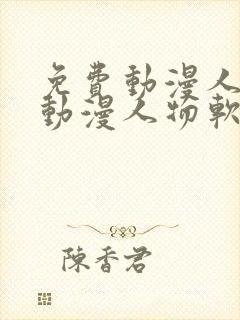 免費動漫人
動漫人物軟
陳香君